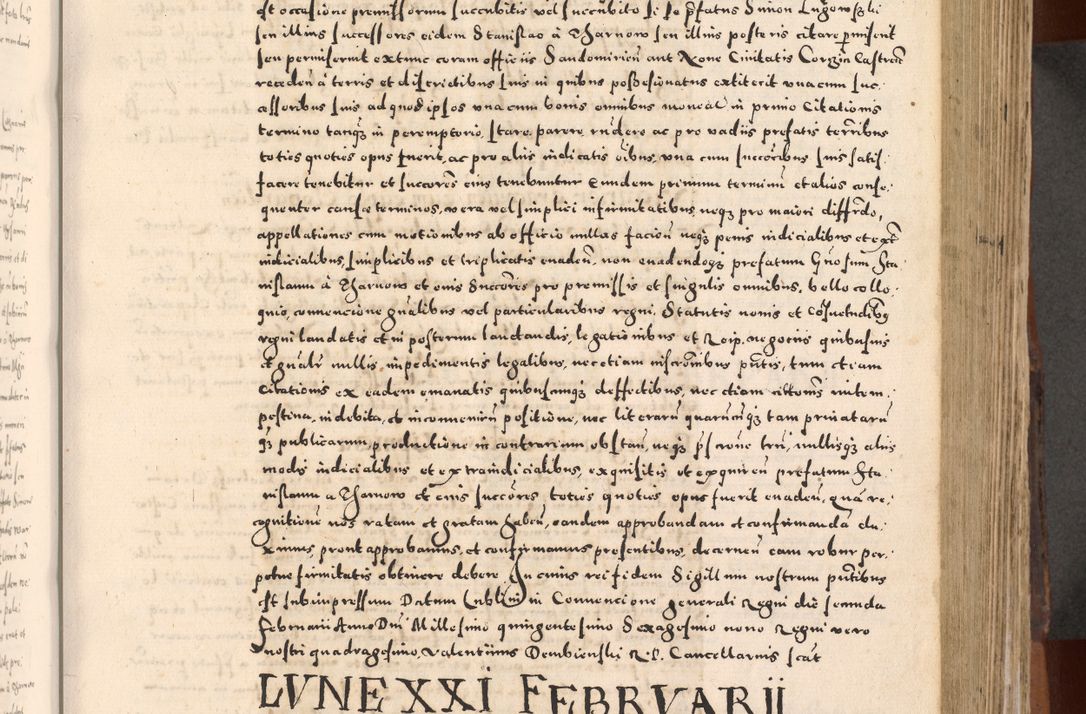 est occasione premissorum succubitis vel succubito si se p̄fatus Simon Lugowszki
seu illius successores eidem Stanislao à Tharnow seu illius posteris citare p̱miserit
seu permiserint extunc coram officiis Sandomirien̄ aut Xone Civitatis Corczin Castren̄
receden̄ à terris et districtibus suis in quibus possessionatus extiterit unacum suc.
cessoribus suis ad quod ipsos una cum bonis omnibus in primo Citationis
termino tanq̄ȝ in peremptorio, stare, parere, rn̄dere ac pro vadiis prefatis terr̄ibus
toties quoties opus fuerit, ac pro aliis iudicatis oībus, una cum succ̄oribus suis satis.
facere tenebitur et succores̄ eius tenebuntur Eundem primum terminū et alios conse.
quenter causæ terminos, vera vel simplici infirmitatibus, neqȝ pro maiori differ̄do,
appellationes cum motionibus ab officio nullas facien̄ neqȝ penis iudicialibus et ext̄
iudicialibus, simplicibus et triplicatis evaden̄, non evadendoqȝ prefatum Gn̄osum Sta.
nislaum à Tharnow et eius Succores̄ pro premissis et singulis omnibus, bello collo.
quio, convencione gn̄alibus vel particularibus regni, Statutis novis et Cōsuetudībȝ
regni laudatis et in posterum laudandis, legationibus et Reip. negociis quibusvis
et gn̄alr̄ nullis impedimentis legalibus, nec etiam infrac̄onibus pn̄tis, tum etiam
Citationis ex eadem emanatis quibuscunqȝ deffectibus, nec etiam
pestina, indebita, et inconvenien̄ positione, nec literarū quarūcūqȝ tam privatarū
qȝ publicarum, productione in contrarium obstan̄ neqȝ p̄scrip̄one trn̄, nullisqȝ aliis
modis iudicialibus et extraiudicialibus, exquisitis et exquiren̄ prefatum Sta.
nislaum a Tharnow et eius succores̄, toties quoties opus fuerit evaden̄, quā re.
cognitionē nos ratam et gratam haben̄, eandem approbandam et confirmandā du.
ximus, prout approbamus, et confirmamus presentibus, decernen̄ eam robur per.
petue firmitatis obtinere debere. In cuius rei fidem Sigillum nostrum pn̄tibus
est subimpressum Datum Lublini in Convencione generali Regni die secunda
Februarii Anno Dn̄i Millesimo quingentesimo Sexagesimo nono Regni vero
nostri quadragesimo, Valentinus Dembienski R.P. Cancellarius sc̄at
LVNE XXI FEBRVARII